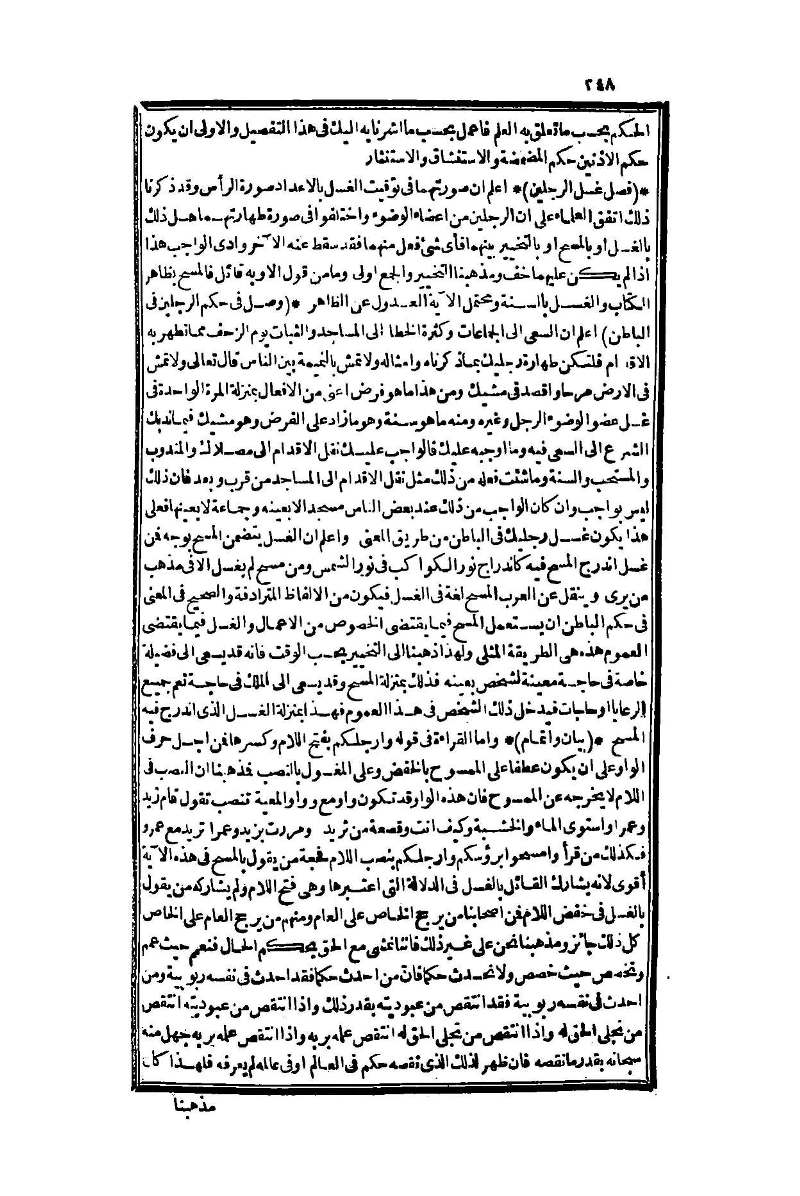 ٢٤٨
الحكم بحسب ما تعلق به العلم فاعمل بحسب ما اشرنا به اليك في هذا التفصيل والاولى ان يكون
حكم الاذنين حكم المضمضة والاستنشاق والاستنثار
*(فصل غسل الرجلين)* اعلم ان صورتهما في توقيت الغسل بالاعداد صورة الرأس وقد ذكرنا
ذلك اتفق العلماء على ان الرجلين من اعضاء الوضوء واختلفوا في صورة طهارتهما هل ذلك
بالغسل او بالمسح او بالتخيير بينهما فأى شئ فعل منهما فقد سقط عنه الآخر وادى الواجب هذا
اذا لم يكن عليهما خف ومذهبنا التخيير والجمع اولى وما من قول الا وبه قائل فالمسح بظاهر
الكتاب والغسل بالسنة ومحتمل الآية العدول عن الظاهر *(وصل في حكم الرجلين في
الباطن) اعلم ان السعى الى الجماعات وكثرة الخطا الى المساجد والثبات يوم الزحف مما تطهر به
الاقدام فلتكن طهارة رجليك بما ذكرناه وامثاله ولا تمش بالنميمة بين الناس قال تعالى ولا تمش
في الارض مرحا واقصد في مشيك ومن هذا ما هو فرض اعنى من الافعال بمنزلة المرة الواحدة في
غسل عضو الوضوء الرجل وغيره ومنه ما هو سنة وهو ما زاد على الفرض وهو مشيك فيما ندبك
الشرع الى السعى فيه وما اوجبه عليك فالواجب عليك نقل الاقدام الى مصلاك والمندوب
والمستحب والسنة وما شئت فعله من ذلك مثل نقل الاقدام الى المساجد من قرب وبعد فان ذلك
ليس بواجب وان كان الواجب من ذلك عند بعض الناس مسجدا لا بعينه وجماعة لا بعينها فعلى
هذا يكون غسل رجليك في الباطن من طريق المعنى واعلم ان الغسل يتضمن المسح بوجه فمن
غسل اندرج المسح فيه كاندراج نور الكواكب في نور الشمس ومن مسح لم يغسل الا في مذهب
من يرى وينقل عن العرب المسح لغة في الغسل فيكون من الالفاظ المترادفة والصحيح في المعنى
في حكم الباطن ان يستعمل المسح فيما يقتضى الخصوص من الاعمال والغسل فيما يقتضى
العموم هذه هى الطريقة المثلى ولهذا ذهبنا الى التخيير بحسب الوقت فانه قد يسعى الى فضيلة
خاصة في حاجة معينة لشخص بعينه فذلك بمنزلة المسح وقد يسعى الى الملك في حاجة تعم جميع
الرعايا او حاجات فيدخل ذلك الشخص في هذا العموم فهذا بمنزلة الغسل الذى اندرج فيه
المسح *(بيان واتمام)* واما القراءة في قوله وارجلكم بفتح اللام وكسرها فمن اجل حرف
الواو على ان يكون عطفا على الممسوح بالخفض وعلى المغسول بالنصب فمذهبنا ان النصب في
اللام لا يخرجه عن الممسوح فان هذه الواو قد تكون واو مع وواو المعية تنصب تقول قام زيد
وعمرا واستوى الماء والخشبة وكيف انت وقصعة من ثريد ومررت بزيد وعمرا تريد مع عمرو
فكذلك من قرأ وامسحوا برؤسكم وارجلكم بنصب اللام فحجة من يقول بالمسح في هذه الآية
أقوى لانه يشارك القائل بالغسل في الدلالة التى اعتبرها وهى فتح اللام ولم يشاركه من يقول
بالغسل في خفض اللام فمن اصحابنا من يرجح الخاص على العام ومنهم من يرجح العام على الخاص
كل ذلك جائز ومذهبنا نحن على غير ذلك فاننا نمشى مع الحق بحكم الحال فنعم حيث عم
ونخصص حيث خصص ولا نحدث حكما فان من احدث حكما فقد احدث في نفسه ربوبية ومن
احدث في نفسه ربوبية فقد انتقص من عبوديته بقدر ذلك واذا انتقص من عبوديته انتقص
من تجلى الحق له واذا انتقص من تجلى الحق له انتقص علمه بربه واذا انتقص علمه بربه جهل منه
سبحانه بقدر ما نقصه فان ظهر لذلك الذى نقصه حكم في العالم او في عالمه لم يعرفه فلهذا كان
مذهبنا